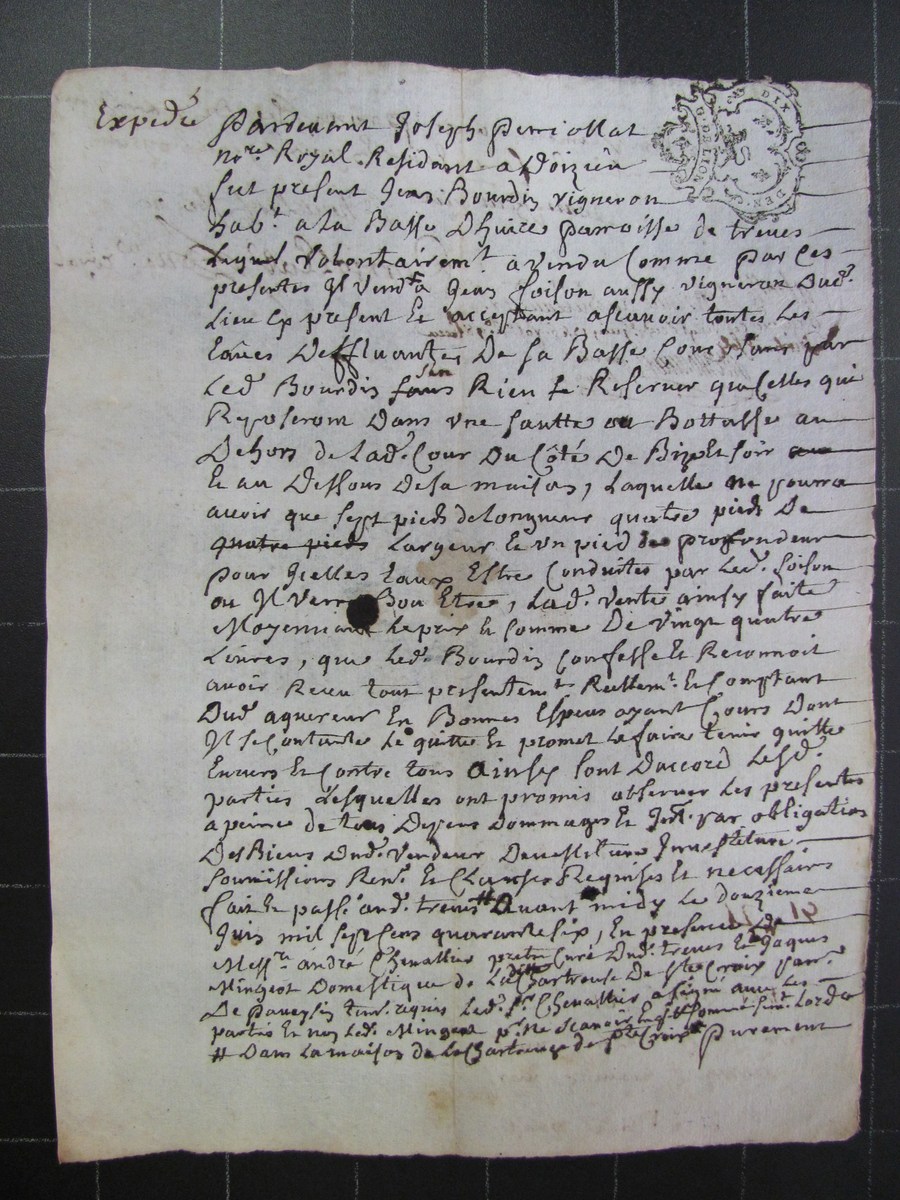 Expediée
Pardevant Joseph Perriollat
no.re Royal Residant a Doizieu
fut present Jean Bourdin vigneron
hab.t a la Basse Dhuire parroisse de treves
Lequel volontairem.t a vendu Comme par Ces
presentes Il vend a Jean foison aussy vigneron Dud.
Lieu Cy present Et acceptant ascavoir toutes Les
Eaües Deffluantes De sa Basse Cour par
Led. Bourdin sans Rien se Reserver que Celles qui
Reposeront Dans une sautte ou Bottasse au
Dehors de Lad. Cour Du Côté De Bize Et soir
Et au Dessous de sa maison, Laquelle ne pourra
avoir que sept pieds de Longueur quatre pieds De
quatre pieds Largeur Et un pied de profondeur
pour Icelles Eaux Estre Conduites par Led. foison
ou Il verra Bon Etre, Lad. vente ainsy faite
Moyennant Le prix Et somme De vingt quatre
Livres, que Led. Bourdin Confesse Et Reconnoit
avoir Receu tout presentem.t Reellem.t Et Comptant
Dud. aquereur En Bonnes Especes ayant Cours Dont
Il se Contente Le quitte Et promet Le faire tenir quitte
Envers Et Contre tous Ainsy sont D'accord Lesd.
parties Lesquelles ont promis observer Les presentes
a peine de tous Depens Dommages Et Int. par obligation
Des Biens Dud. vendeur Devestiture Investiture
soumissions Ren. Et Clauses Requises Et necessaires
fait Et passé aud. treves # Avant midy Le douzieme
Juin mil sept cens quarante six, En presence De
Mess.re andré Chevallier pretre Curé Dud. treves Et Jaques
Mingeot Domestique de La Chartreuse De Ste Croix parr.
De Pavezin tem. requis Led. Sr. Chevallier a signé avec Les
parties Et non Led. Mingeot p.r Ne scavoir
# Dans La maison de La Chartreuse de Ste Croix purement
DIX DEN.
G. DE LION